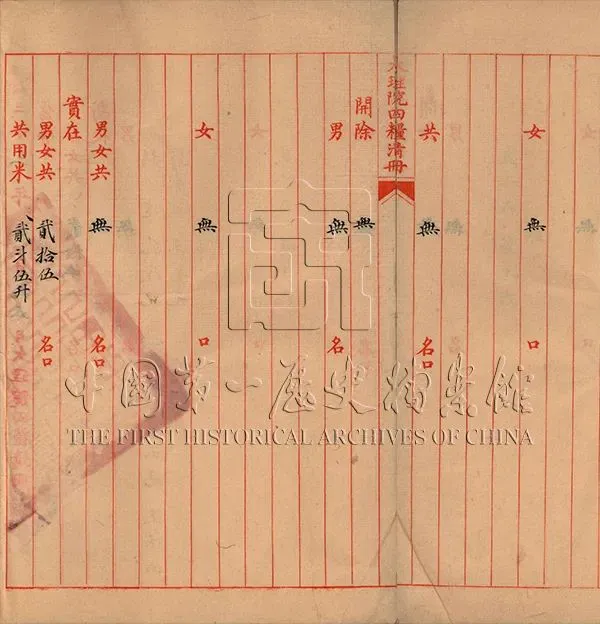 女 無 口
共 無 名口
大理院囚糧清冊
開除 無
男 無 名
女 無 口
男女共 無 名口
實在
男女共 貳拾伍 名口
共用米 貳斗伍升
中国第一历史档案馆
THE FIRST HISTORICAL ARCHIVES OF CHINA